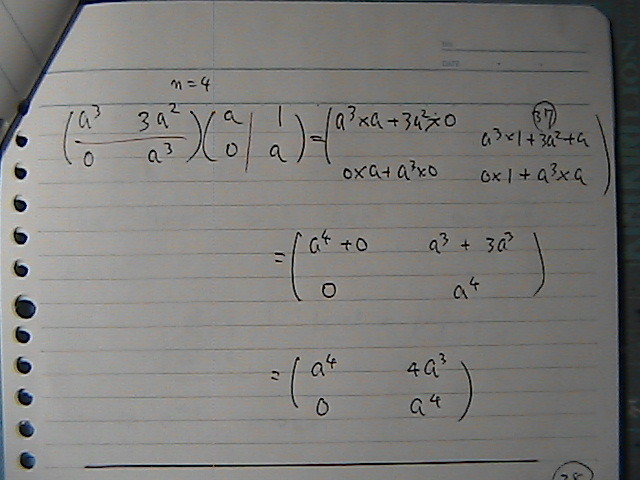 NO.
DATE
n=4
(a³ 3a² / 0 a³)(a 1 / 0 a) = (a³×a+3a²×0 a³×1+3a²+a / 0×a+a³×0 0×1+a³×a)
37
= (a⁴+0 a³+3a³ / 0 a⁴)
= (a⁴ 4a³ / 0 a⁴)